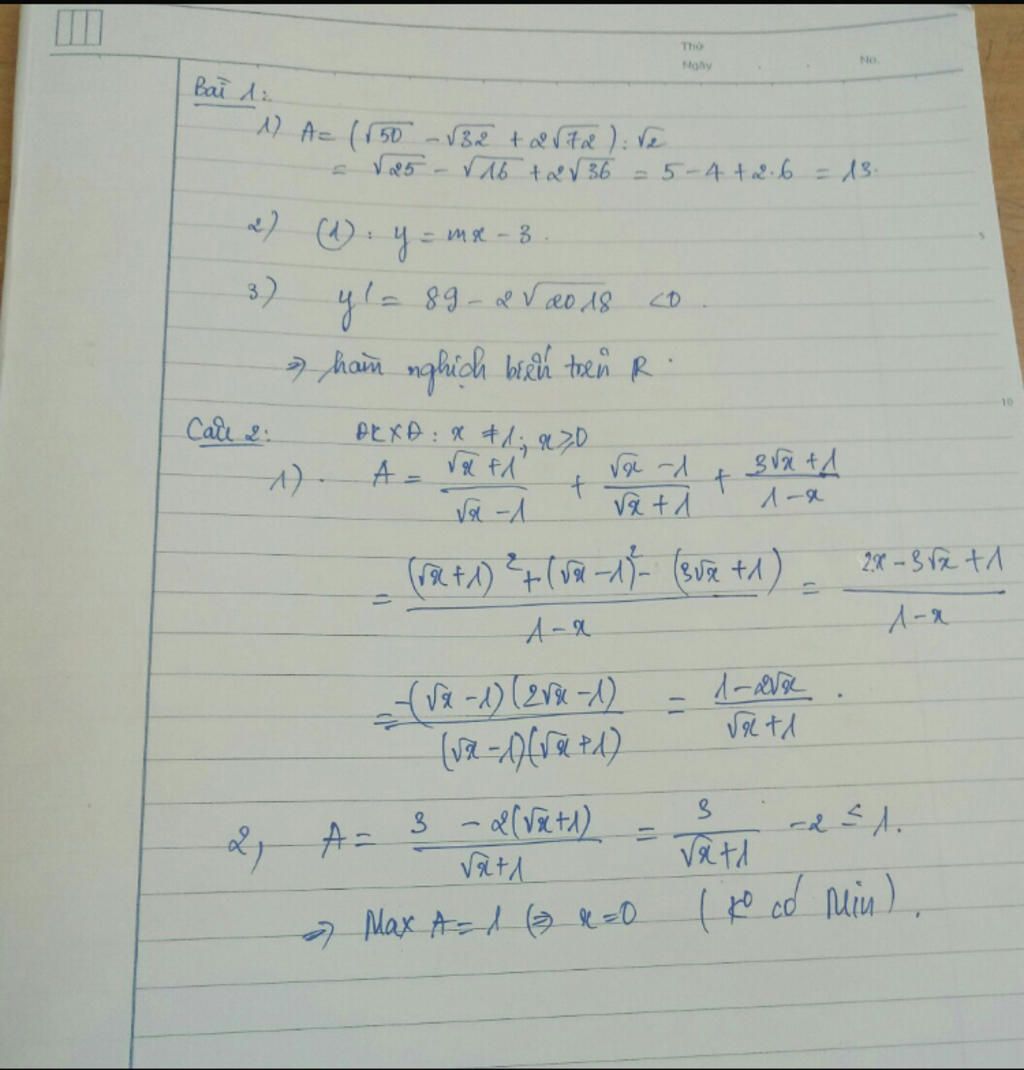 Thứ
Ngày . . No.
Bài 1:
1) A = (√50 - √32 + 2√72) : √2
= √25 - √16 + 2√36 = 5 - 4 + 2.6 = 13.
2) (1) : y = mx - 3.
5
3) y' = 89 - 2√2018 < 0.
⇒ hàm nghịch biến trên R.
10
Câu 2: ĐKXĐ: x ≠ 1; x ≥ 0
1). A = (√x + 1)/(√x - 1) + (√x - 1)/(√x + 1) + (3√x + 1)/(1 - x)
= ((√x + 1)² + (√x - 1)² - (3√x + 1))/(1 - x) = (2x - 3√x + 1)/(1 - x)
= -(√x - 1)(2√x - 1)/((√x - 1)(√x + 1)) = (1 - 2√x)/(√x + 1).
2, A = (3 - 2(√x + 1))/(√x + 1) = 3/(√x + 1) - 2 ≤ 1.
⇒ Max A = 1 ⇔ x = 0 (K⁰ có Min).